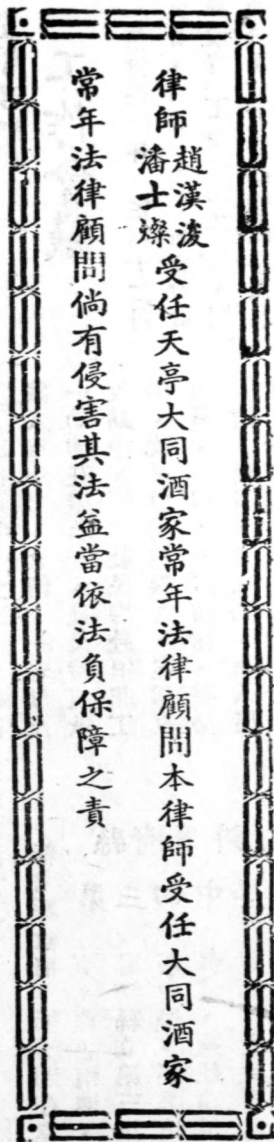 律師趙漢浚潘士燦受任天亭大同酒家常年法律顧問本律師受任大同酒家
常年法律顧問倘有侵害其法益當依法負保障之責